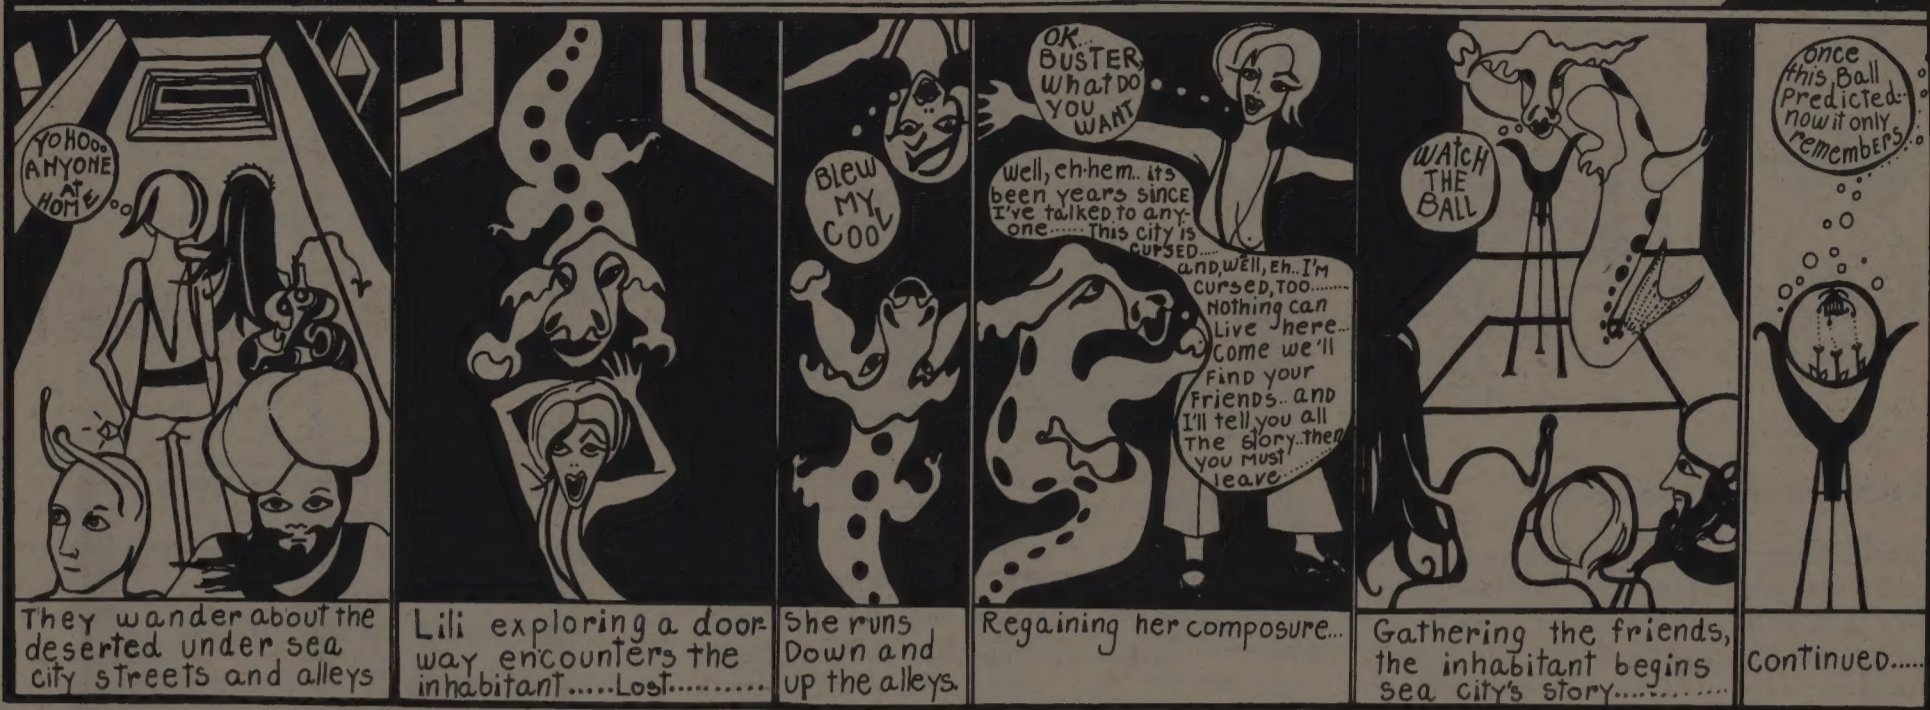 YOHOo..
ANYONE
AT
HOME
They wander about the
deserted under sea
city streets and alleys
Lili exploring a door-
way encounters the
inhabitant.....Lost...........
BLEW
MY
COOL
She runs
Down and
up the alleys.
OK...
BUSTER,
What DO
YOU
WANT
Well, eh-hem.. its
been years since
I've talked to any-
one...... This city is
cursed.....
and, well, Eh.. I'm
cursed, too.......
Nothing can
Live here...
Come we'll
Find your
Friends.. and
I'll tell you all
The story..then
you must
leave......
Regaining her composure...
WATCH
THE
BALL
Gathering the friends,
the inhabitant begins
sea city's story............
once
this Ball
Predicted..
now it only
remembers
Continued.....